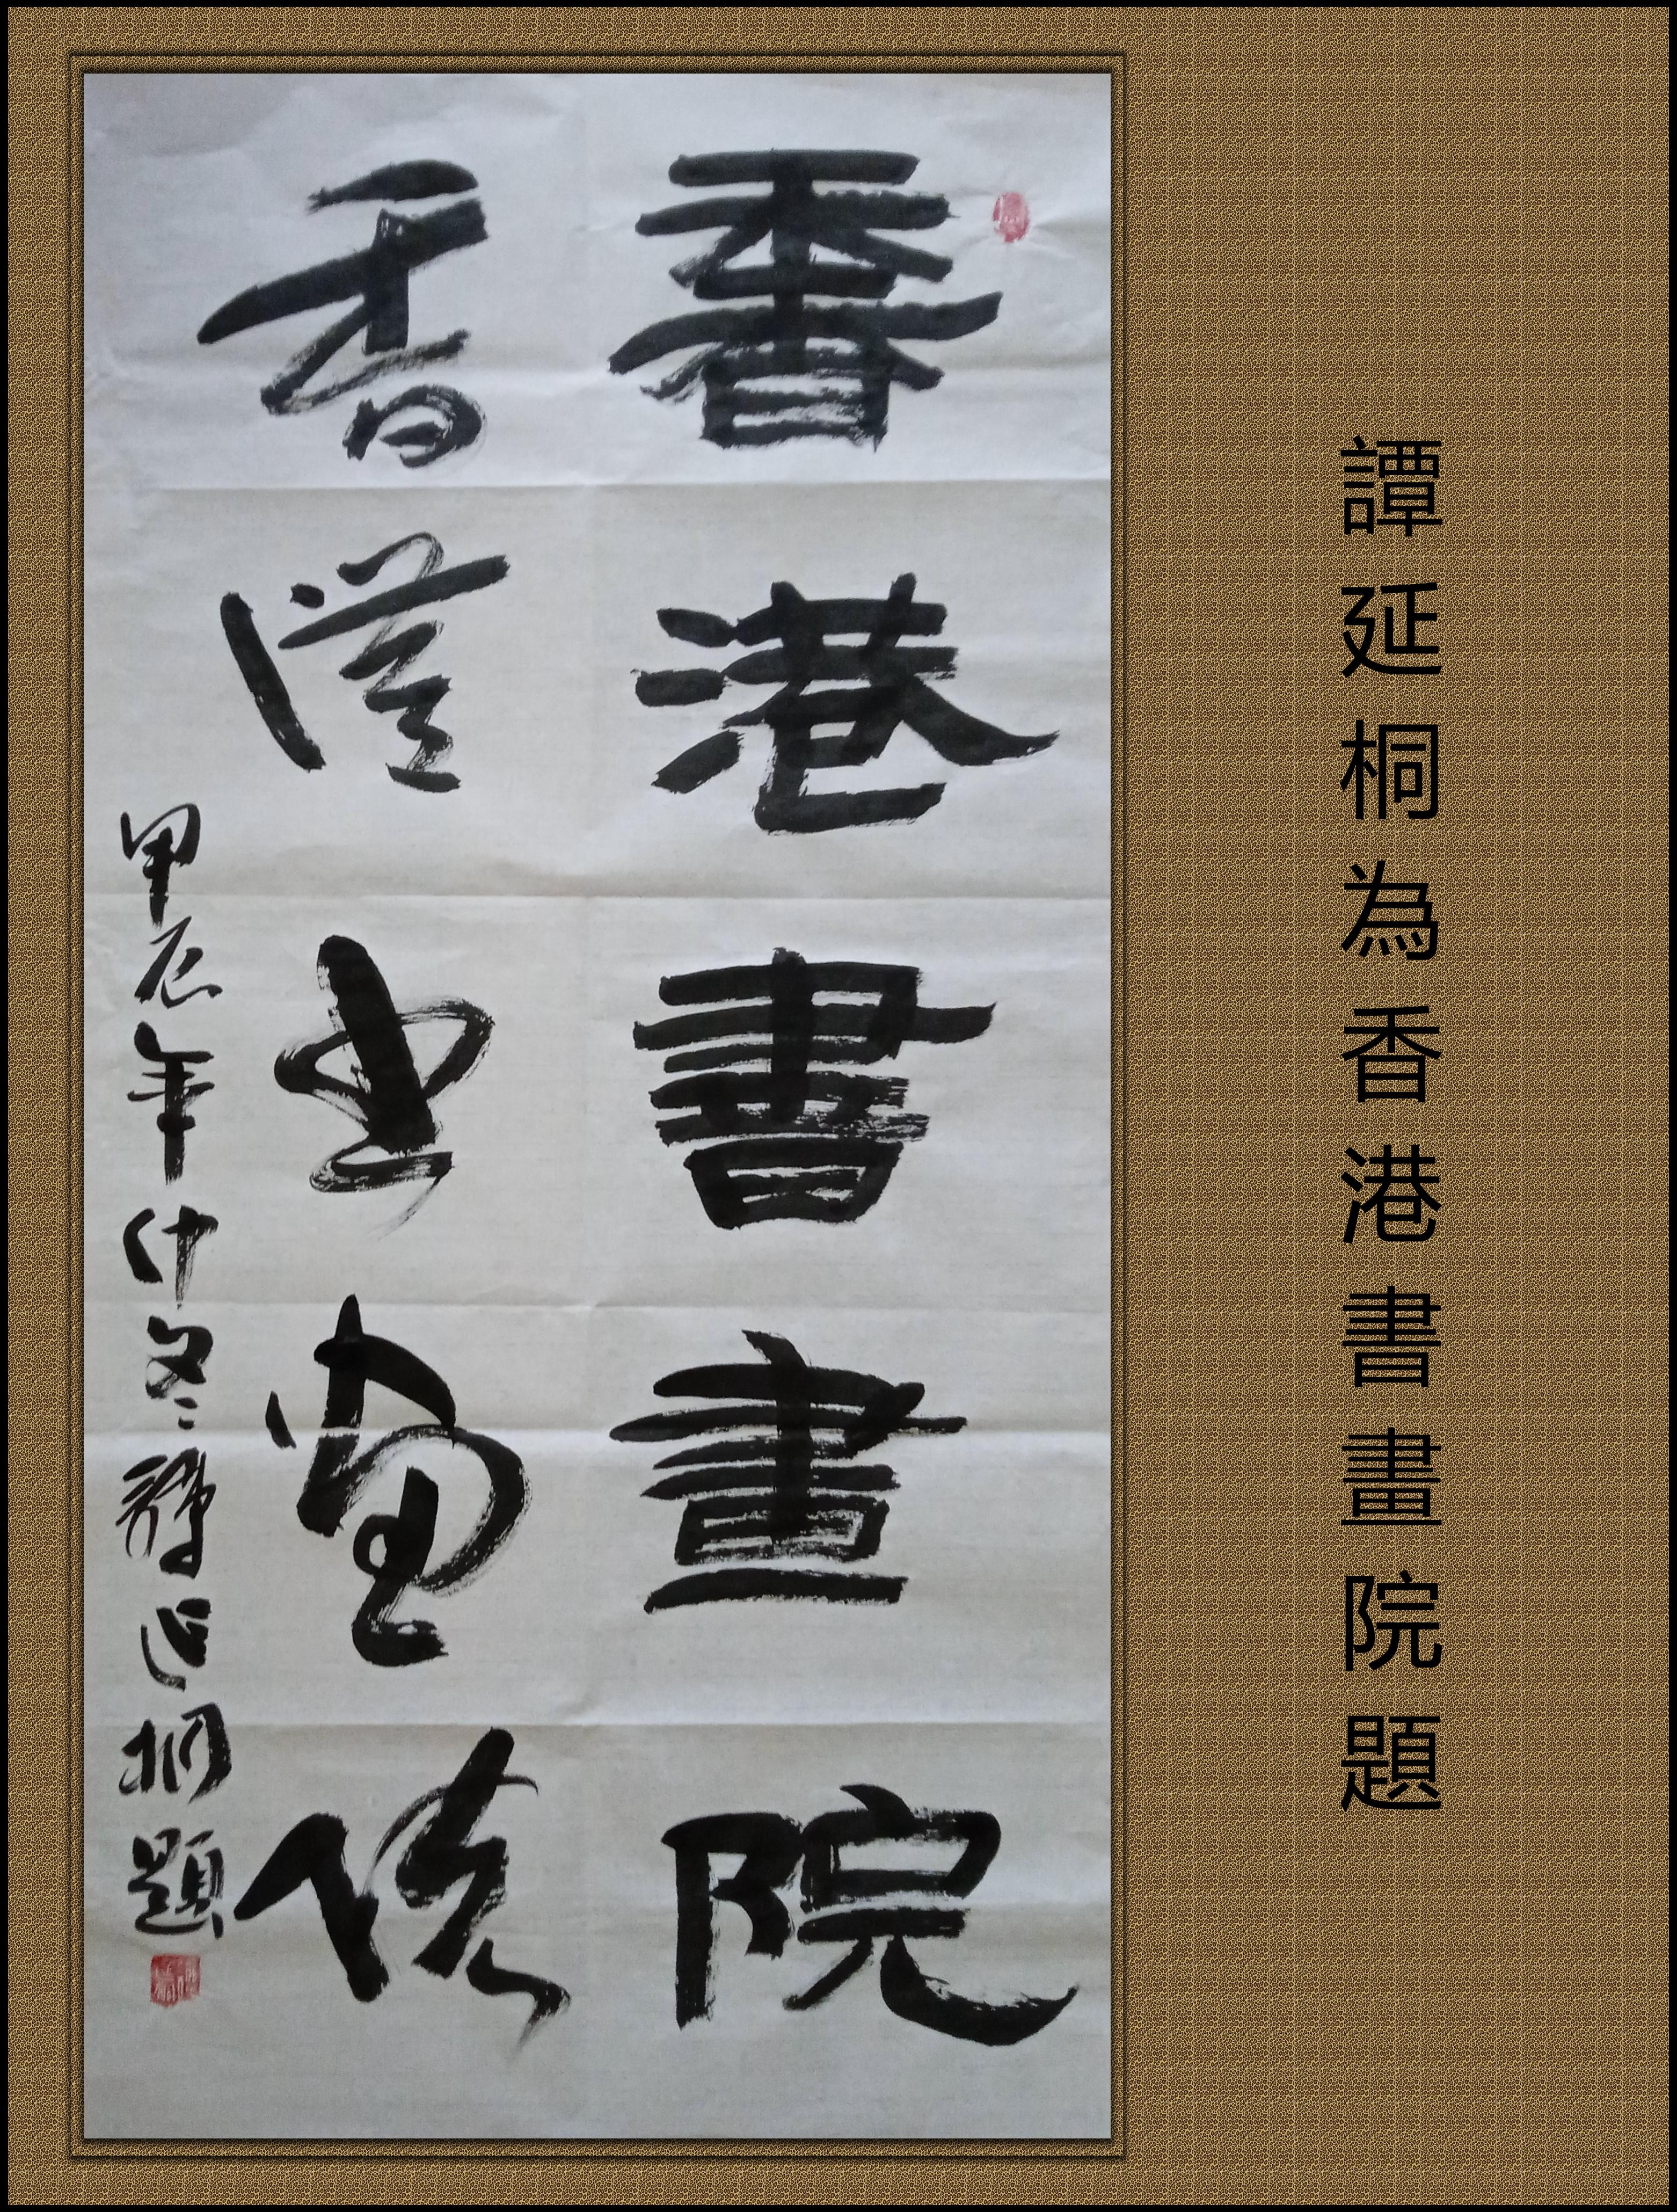 譚延桐為香港書畫院題
香港書畫院
香港書畫院
甲辰年什冬譚延桐題